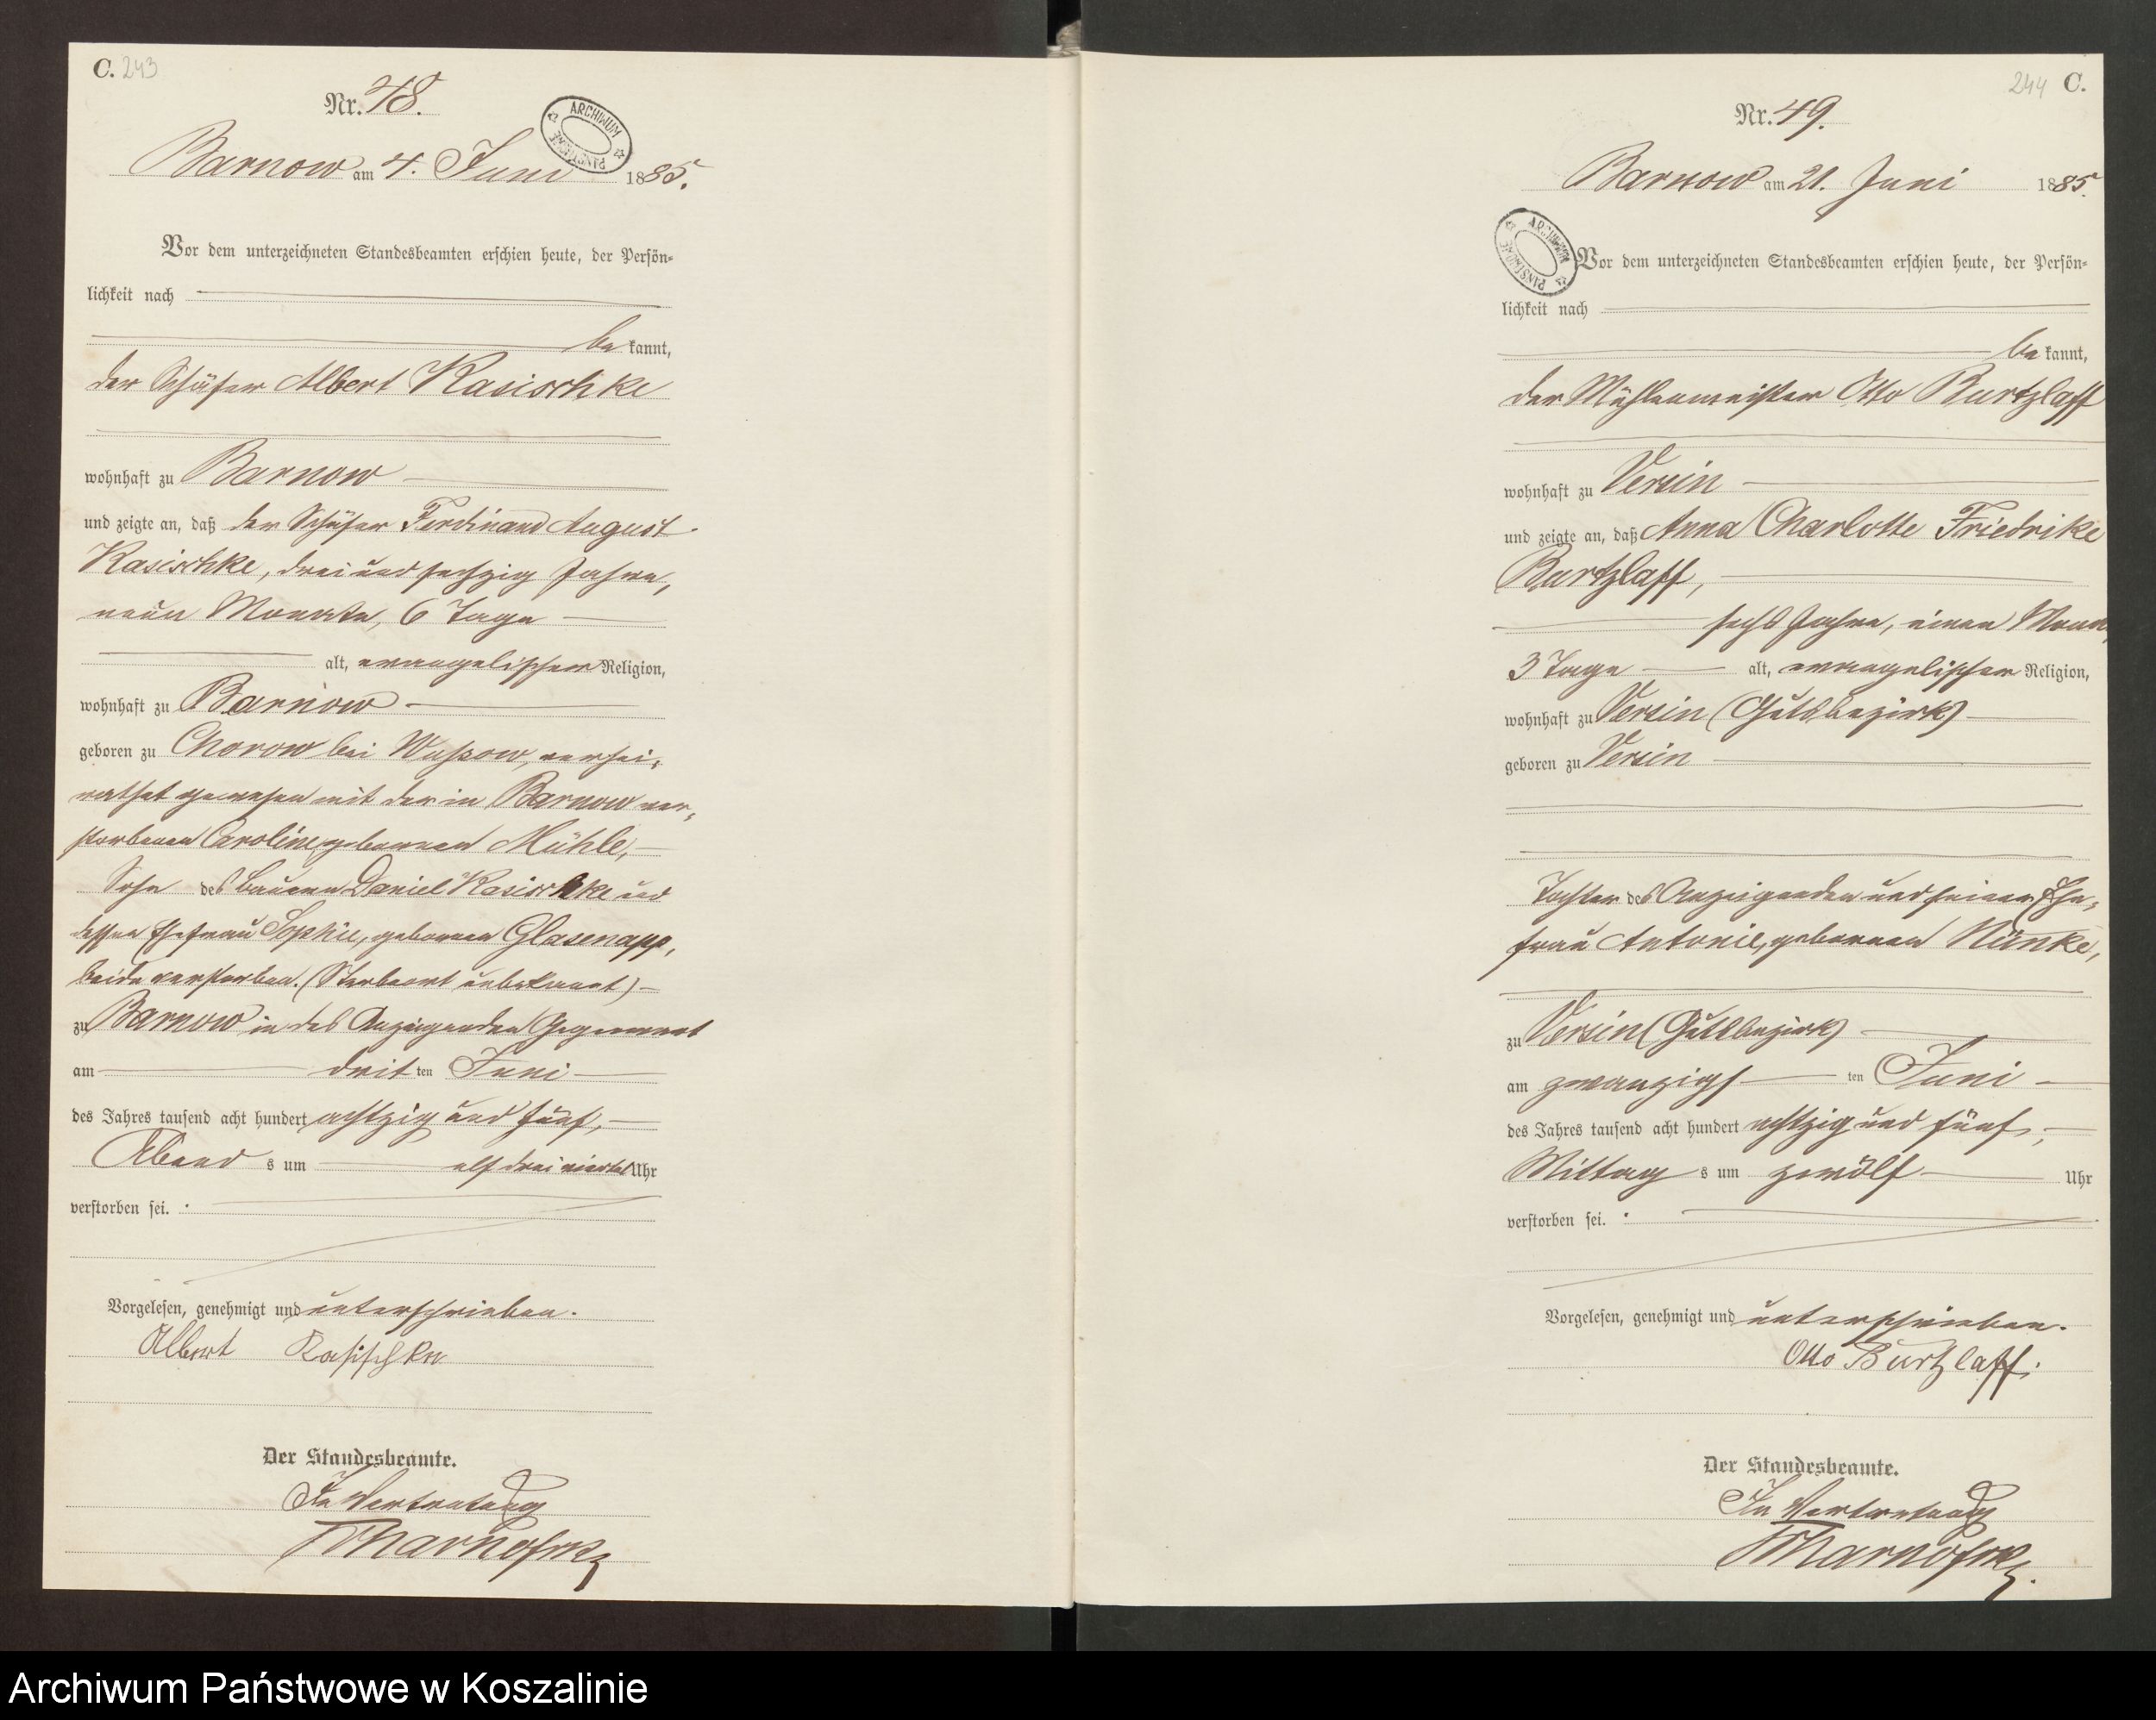 C. 243
Nr. 48.
ARCHIWUM PAŃSTWOWE
Barnow am 4. Juni 1885.
Vor dem unterzeichneten Standesbeamten erschien heute, der Persön-
lichkeit nach
be kannt,
der Schäfer Albert Kasischke
wohnhaft zu Barnow
und zeigte an, daß der Schäfer Ferdinand August
Kasischke, drei und sechzig Jahre,
neun Monate, 6 Tage
alt, evangelischer Religion,
wohnhaft zu Barnow
geboren zu Chorow bei Wussow, verhei-
rathet gewesen mit der in Barnow ver-
storbenen Caroline, geborenen Mühle,
Sohn des Bauern Daniel Kasischke und
dessen Ehefrau Sophie, geborenen Glasenapp,
beide verstorben. (Sterbeort unbekannt)
zu Barnow in des Anzeigenden Gegenwart
am drit ten Juni
des Jahres tausend acht hundert achtzig und fünf,
Abend s um elf dreiviertel Uhr
verstorben sei.
Vorgelesen, genehmigt und unterschrieben.
Albert Kasischke
Der Standesbeamte.
In Vertretung
244 C.
Nr. 49.
Barnow am 21. Juni 1885.
ARCHIWUM PAŃSTWOWE
Vor dem unterzeichneten Standesbeamten erschien heute, der Persön-
lichkeit nach
be kannt,
der Mühlenmeister Otto Burtzlaff
wohnhaft zu Versin
und zeigte an, daß Anna Charlotte Friedrike
Burtzlaff,
sechs Jahre, einen Monat,
3 Tage alt, evangelischer Religion,
wohnhaft zu Versin (Gutsbezirk)
geboren zu Versin
Tochter des Anzeigenden und seiner Ehe-
frau Antonie, geborenen Künke,
zu Versin (Gutsbezirk)
am zwanzigs ten Juni
des Jahres tausend acht hundert achtzig und fünf,
Mittag s um zwölf Uhr
verstorben sei.
Vorgelesen, genehmigt und unterschrieben.
Otto Burtzlaff.
Der Standesbeamte.
In Vertretung
Archiwum Państwowe w Koszalinie